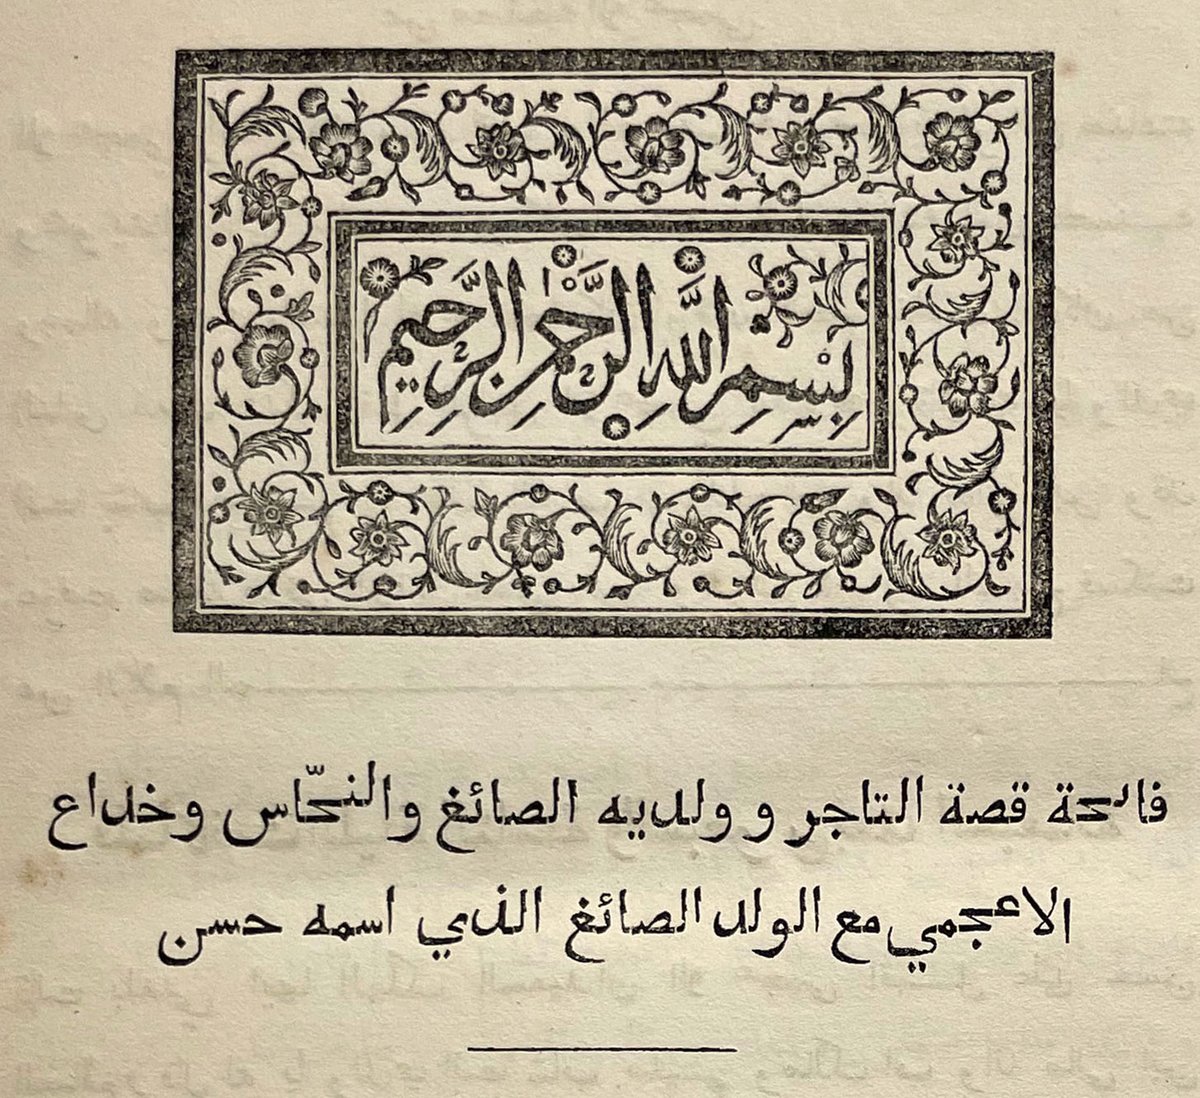 بِسْمِ اللّٰهِ الرَّحْمٰنِ الرَّحِيْمِ
فاتحة قصة التاجر وولديه الصائغ والنحّاس وخداع
الاعجمي مع الولد الصائغ الذي اسمه حسن